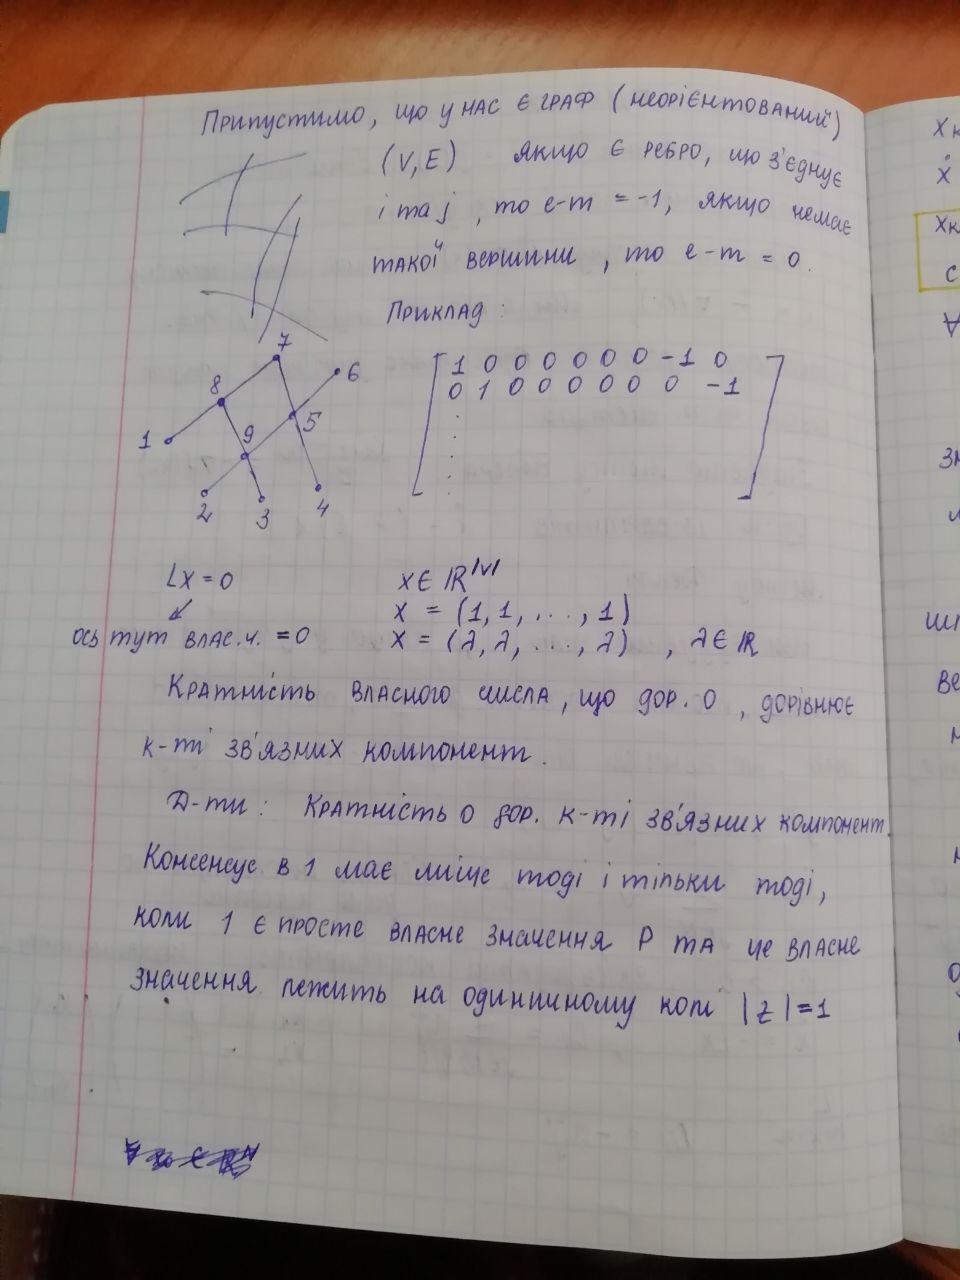 Припустимо, що у нас є граф (неорієнтований)
(V, E) якщо є ребро, що з'єднує
і та j, то е-т = -1, якщо немає
такої вершини, то е-т = 0.
Приклад:
7
6
8
5
9
1
2
3
4
1 0 0 0 0 0 0 -1 0
0 1 0 0 0 0 0 0 -1
Lx = 0
x ∈ ℝ^|V|
x = (1, 1, ..., 1)
ось тут влас.ч. = 0
x = (λ, λ, ..., λ), λ ∈ ℝ
Кратність власного числа, що дор. 0, дорівнює
к-ті зв'язних компонент.
Д-ти: Кратність 0 дор. к-ті зв'язних компонент.
Консенсус в 1 має лише тоді і тільки тоді,
коли 1 є просте власне значення P та це власне
значення лежить на одиничному колі |z|=1
Хк
ẋ
Хк
с